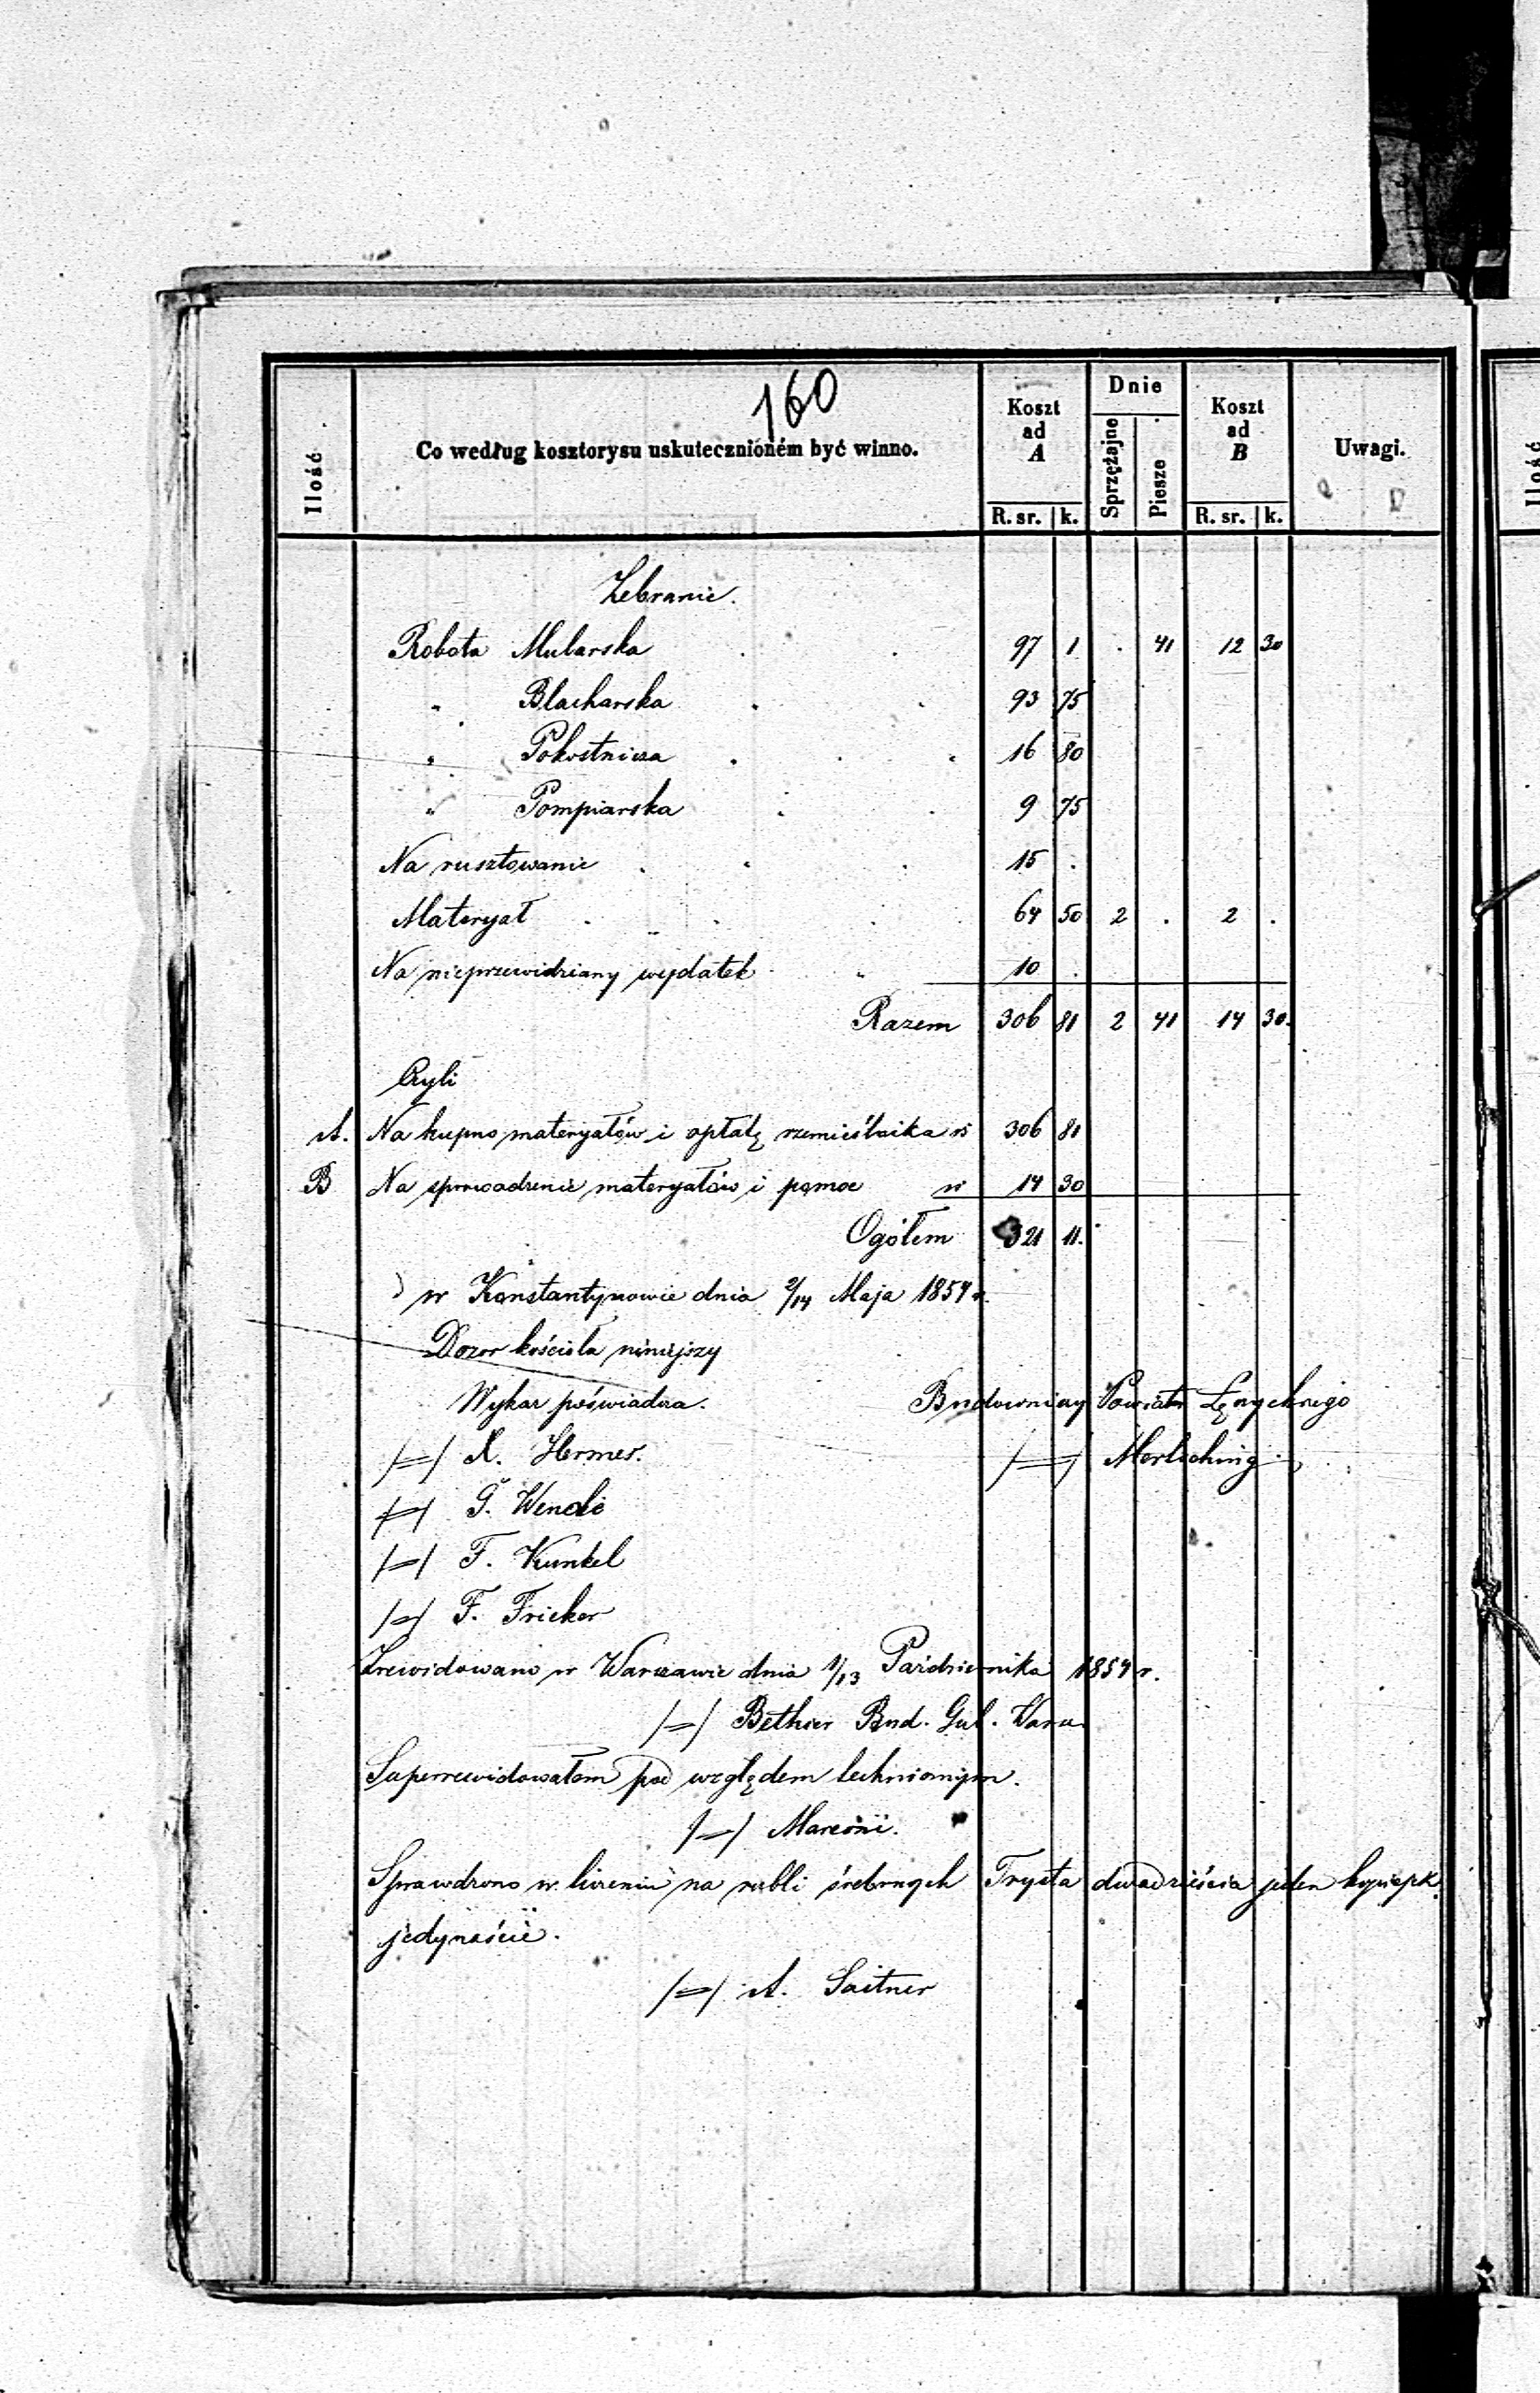 160
Ilość
Co według kosztorysu uskutecznioném być winno.
Koszt ad A
R. sr. k.
Dnie
Sprzężajne
Piesze
Koszt ad B
R. sr. k.
Uwagi.
Zebranie.
Robota Mularska . . 97 1 . 41 12 30
„ Blacharska . . 93 75
„ Pokostnicza . . . 16 80
„ Pompiarska . . 9 75
Na rusztowanie . . . 15 .
Materyał . . . 64 50 2 . 2 .
Na nieprzewidziany wydatek . 10 .
Razem 306 81 2 41 14 30.
Czyli
A. Na kupno materyałów i opłatę rzemieślnika rs 306 81
B Na sprowadzenie materyałów i pomoc rs 14 30
Ogółem 321 11.
w Konstantynowie dnia 2/14 Maja 1854 r.
Dozor kościoła niniejszy
Wykaz poświadcza. Budowniczy Powiatu Łęczyckiego
/=/ X. Hermes. /=/ Merlsching
/=/ G. Wende
/=/ F. Kunkel
/=/ F. Fricker
Zrewidowano w Warszawie dnia 1/13 Października 1854 r.
/=/ Bethier Bud. Gub. Warsz.
Superrewidowałem pod względem technicznym.
/=/ Marconi.
Sprawdzono w liczeniu na rubli srebrnych Trzysta dwadzieścia jeden kopiejek
jedynaście.
/=/ A. Saitner